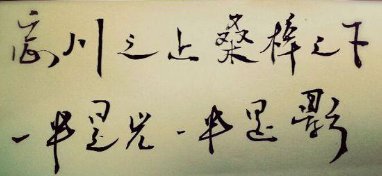 川之上桑梓之下
一半是光一半是影